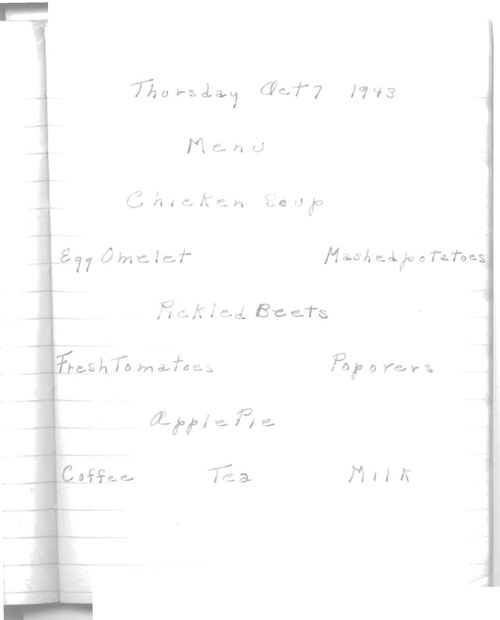 Thursday Oct 7 1943
Menu
Chicken Soup
Egg Omelet Mashed potatoes
Pickled Beets
Fresh Tomatoes Popovers
Apple Pie
Coffee Tea Milk